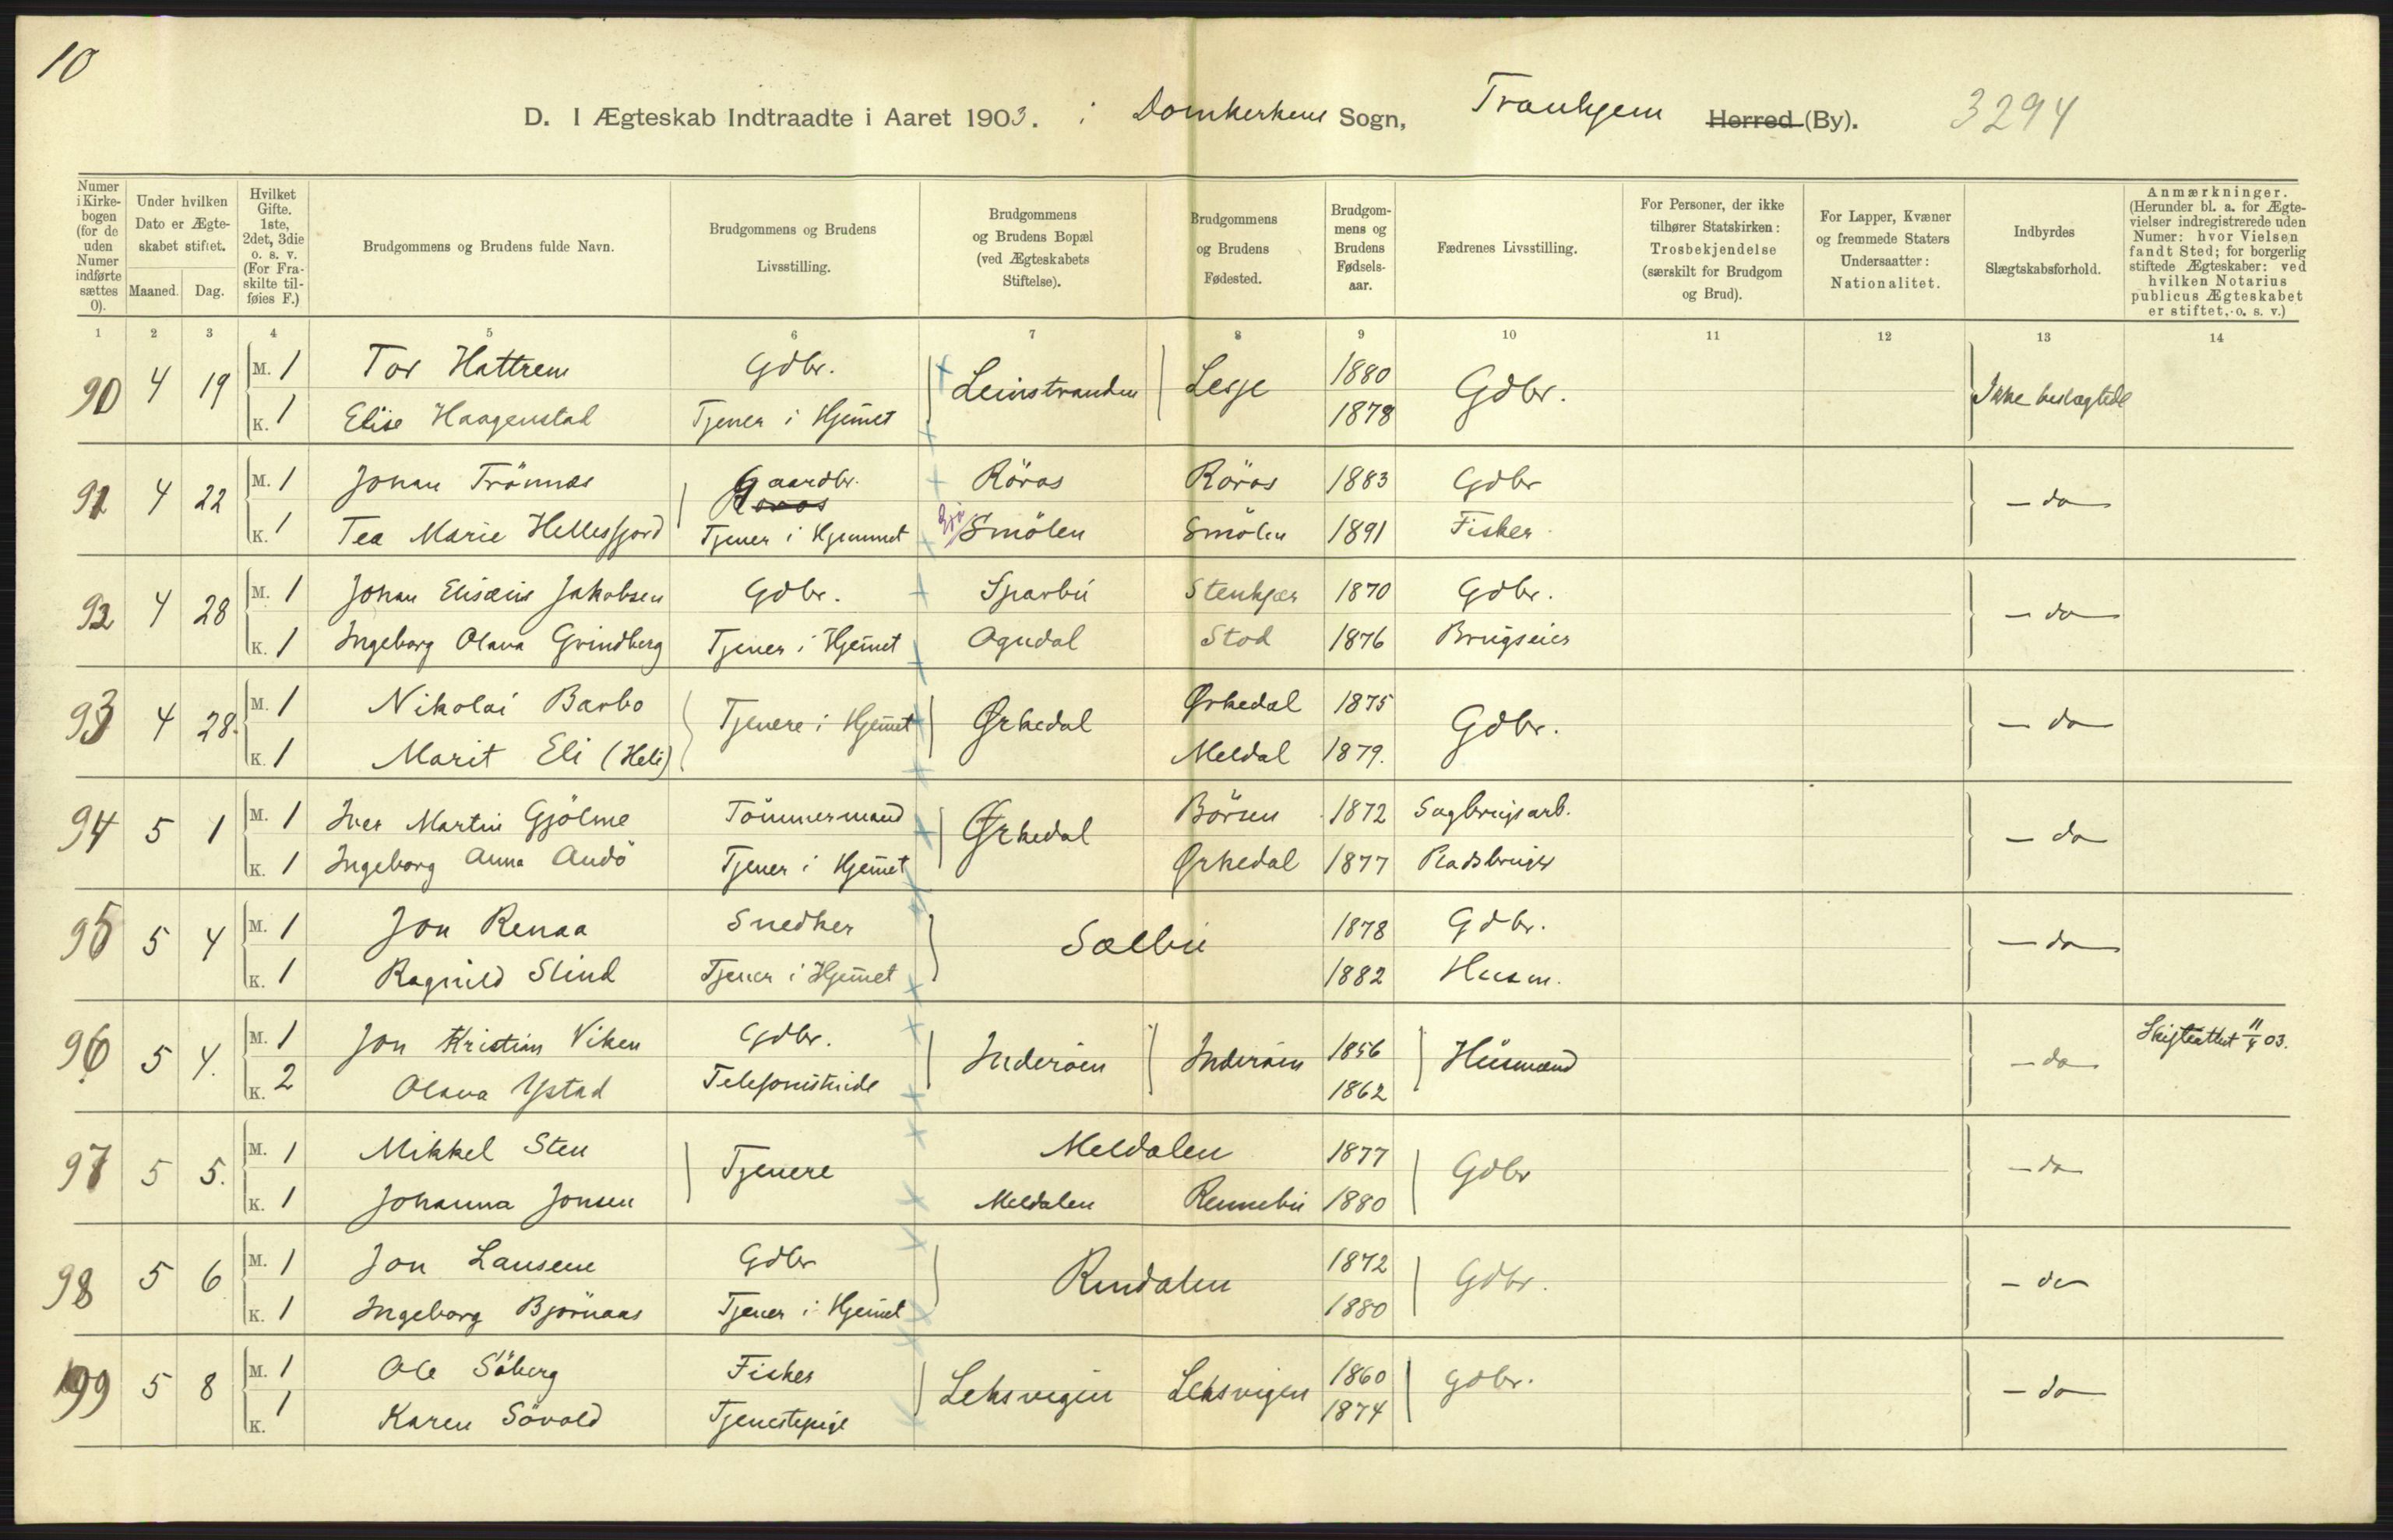 10
D. I Ægteskab Indtraadte i Aaret 1903. i Domkerkens Sogn, Tronhjem Herred (By). 3294
Numer i Kirkebogen (for de uden Numer indførte sættes 0).
Under hvilken Dato er Ægteskabet stiftet.
Maaned. Dag.
Hvilket Gifte. 1ste, 2det, 3die o. s. v. (For Fraskilte tilføies F.)
Brudgommens og Brudens fulde Navn.
Brudgommens og Brudens Livsstilling.
Brudgommens og Brudens Bopæl (ved Ægteskabets Stiftelse).
Brudgommens og Brudens Fødested.
Brudgommens og Brudens Fødselsaar.
Fædrenes Livsstilling.
For Personer, der ikke tilhører Statskirken: Trosbekjendelse (særskilt for Brudgom og Brud).
For Lapper, Kvæner og fremmede Staters Undersaatter: Nationalitet.
Indbyrdes Slægtskabsforhold.
Anmærkninger. (Herunder bl. a. for Ægtevielser indregistrerede uden Numer: hvor Vielsen fandt Sted; for borgerlig stiftede Ægteskaber: ved hvilken Notarius publicus Ægteskabet er stiftet, o. s. v.)
1 2 3 4 5 6 7 8 9 10 11 12 13 14
90 4 19 M. 1 Tor Hattrem Gdbr. Leinstranden Lesje 1880 Gdbr. Ikke beslægtede
K. 1 Elise Haagenstad Tjener i Hjemet 1878
91 4 22 M. 1 Johan Trönnes Gaardbr. Röros Röros 1883 Gdbr - do
K. 1 Tea Marie Hellesfjord Tjener i Hjemmet Smölen Smölen 1891 Fisker
92 4 28 M. 1 Johan Elisæus Jakobsen Gdbr. Sparbu Stenkjær 1870 Gdbr. - do
K. 1 Ingeborg Olava Grindberg Tjener i Hjemet Ogndal Stod 1876 Brugseier
93 4 28. M. 1 Nikolai Barbo Tjenere i Hjemet Ørkedal Ørkedal 1875 Gdbr. - do
K. 1 Marit Eli (Heli) Meldal 1879.
94 5 1 M. 1 Iver Martin Gjölme Tömmermand Ørkedal Börsen 1872 Sagbrugsarb. - do
K. 1 Ingeborg Anna Andö Tjener i Hjemet Ørkedal 1877 Pladsbruger
95 5 4 M. 1 Jon Renaa Snedker Sælbu 1878 Gdbr. - do
K. 1 Ragnild Slind Tjener i Hjemet 1882 Husm.
96 5 4. M. 1 Jon Kristian Viken Gdbr. Inderöen Inderöen 1856 Husmænd - do Skifteattest 11/4 03.
K. 2 Olava Ystad Telefonistinde 1862
97 5 5. M. 1 Mikkel Sten Tjenere Meldalen 1877 Gdbr - do
K. 1 Johanna Jonsen Meldalen Rennebu 1880
98 5 6 M. 1 Jon Lansem Gdbr Rindalen 1872 Gdbr. - do
K. 1 Ingeborg Björnaas Tjener i Hjemet 1880
99 5 8 M. 1 Ole Söberg Fisker Leksvigen Leksvigen 1860 Gdbr. - do
K. 1 Karen Sövold Tjenestepige 1874